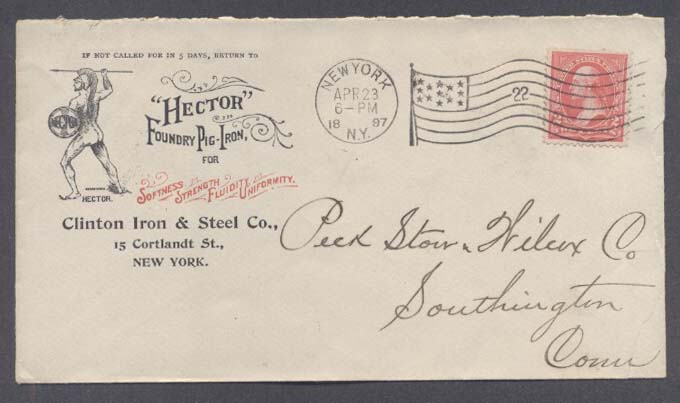 IF NOT CALLED FOR IN 5 DAYS, RETURN TO
"HECTOR"
FOUNDRY PIG-IRON,
FOR
SOFTNESS STRENGTH FLUIDITY UNIFORMITY.
HECTOR.
Clinton Iron & Steel Co.,
15 Cortlandt St.,
NEW YORK.
NEW YORK
APR 23
6-PM
18 97
N.Y.
22
Peck Stow & Wilcox Co
Southington
Conn